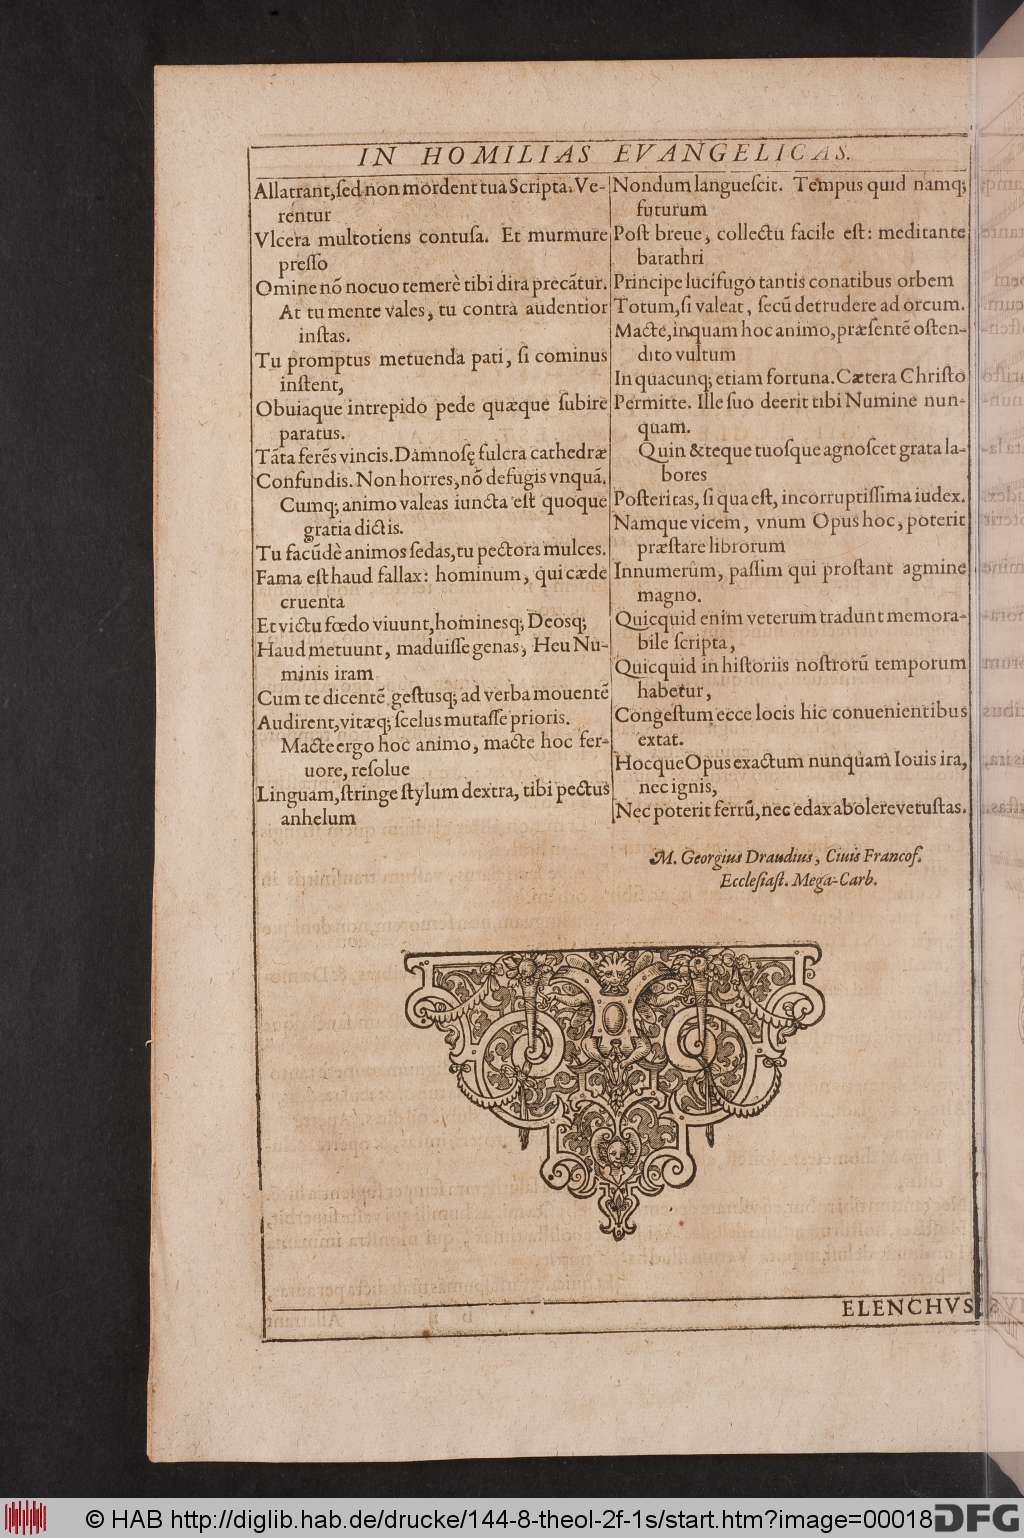 IN HOMILIAS EVANGELICAS.
Allatrant, ſed non mordent tua Scripta. Ve-
rentur
Vlcera multotiens contuſa. Et murmure
preſſo
Omine nõ nocuo temerè tibi dira precãtur.
At tu mente vales, tu contrà audentior
inſtas.
Tu promptus metuenda pati, ſi cominus
inſtent,
Obuiaque intrepido pede quæque ſubire
paratus.
Tãta ferẽs vincis. Damnoſę fulcra cathedræ
Confundis. Non horres, nõ defugis vnquã.
Cumq; animo valeas iuncta eſt quoque
gratia dictis.
Tu facũdè animos ſedas, tu pectora mulces.
Fama eſt haud fallax: hominum, qui cæde
cruenta
Et victu fœdo viuunt, hominesq; Deosq;
Haud metuunt, maduiſſe genas, Heu Nu-
minis iram
Cum te dicentẽ geſtusq; ad verba mouentẽ
Audirent, vitæq; ſcelus mutaſſe prioris.
Macte ergo hoc animo, macte hoc fer-
uore, reſolue
Linguam, ſtringe ſtylum dextra, tibi pectus
anhelum
Nondum langueſcit. Tempus quid namq;
futurum
Poſt breue, collectu facile eſt: meditante
barathri
Principe lucifugo tantis conatibus orbem
Totum, ſi valeat, ſecũ detrudere ad orcum.
Macte, inquam hoc animo, præſentẽ oſten-
dito vultum
In quacunq; etiam fortuna. Cætera Chriſto
Permitte. Ille ſuo deerit tibi Numine nun-
quam.
Quin & teque tuoſque agnoſcet grata la-
bores
Poſteritas, ſi qua eſt, incorruptiſſima iudex.
Namque vicem, vnum Opus hoc, poterit
præſtare librorum
Innumerûm, paſſim qui proſtant agmine
magno.
Quicquid enim veterum tradunt memora-
bile ſcripta,
Quicquid in hiſtoriis noſtrorũ temporum
habetur,
Congeſtum ecce locis hic conuenientibus
extat.
Hocque Opus exactum nunquam Iouis ira,
nec ignis,
Nec poterit ferrũ, nec edax abolere vetuſtas.
M. Georgius Draudius, Ciuis Francof.
Eccleſiaſt. Mega-Carb.
ELENCHVS
© HAB http://diglib.hab.de/drucke/144-8-theol-2f-1s/start.htm?image=00018
DFG